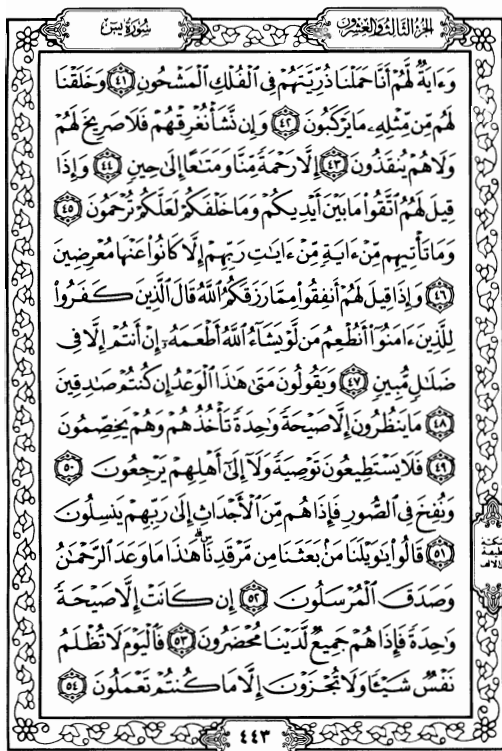 سُورَةُ يسٓ
الجُزْءُ الثَّالِثُ وَالعِشْرُونَ
وَءَايَةٌ لَّهُمْ أَنَّا حَمَلْنَا ذُرِّيَّتَهُمْ فِي ٱلْفُلْكِ ٱلْمَشْحُونِ ٤١ وَخَلَقْنَا
لَهُم مِّن مِّثْلِهِۦ مَا يَرْكَبُونَ ٤٢ وَإِن نَّشَأْ نُغْرِقْهُمْ فَلَا صَرِيخَ لَهُمْ
وَلَا هُمْ يُنقَذُونَ ٤٣ إِلَّا رَحْمَةً مِّنَّا وَمَتَٰعًا إِلَىٰ حِينٍ ٤٤ وَإِذَا
قِيلَ لَهُمُ ٱتَّقُوا۟ مَا بَيْنَ أَيْدِيكُمْ وَمَا خَلْفَكُمْ لَعَلَّكُمْ تُرْحَمُونَ ٤٥
وَمَا تَأْتِيهِم مِّنْ ءَايَةٍ مِّنْ ءَايَٰتِ رَبِّهِمْ إِلَّا كَانُوا۟ عَنْهَا مُعْرِضِينَ
٤٦ وَإِذَا قِيلَ لَهُمْ أَنفِقُوا۟ مِمَّا رَزَقَكُمُ ٱللَّهُ قَالَ ٱلَّذِينَ كَفَرُوا۟
لِلَّذِينَ ءَامَنُوٓا۟ أَنُطْعِمُ مَن لَّوْ يَشَآءُ ٱللَّهُ أَطْعَمَهُۥٓ إِنْ أَنتُمْ إِلَّا فِي
ضَلَٰلٍ مُّبِينٍ ٤٧ وَيَقُولُونَ مَتَىٰ هَٰذَا ٱلْوَعْدُ إِن كُنتُمْ صَٰدِقِينَ
٤٨ مَا يَنظُرُونَ إِلَّا صَيْحَةً وَٰحِدَةً تَأْخُذُهُمْ وَهُمْ يَخِصِّمُونَ
٤٩ فَلَا يَسْتَطِيعُونَ تَوْصِيَةً وَلَآ إِلَىٰٓ أَهْلِهِمْ يَرْجِعُونَ ٥٠
وَنُفِخَ فِي ٱلصُّورِ فَإِذَا هُم مِّنَ ٱلْأَجْدَاثِ إِلَىٰ رَبِّهِمْ يَنسِلُونَ
٥١ قَالُوا۟ يَٰوَيْلَنَا مَنۢ بَعَثَنَا مِن مَّرْقَدِنَاۜۗ هَٰذَا مَا وَعَدَ ٱلرَّحْمَٰنُ
وَصَدَقَ ٱلْمُرْسَلُونَ ٥٢ إِن كَانَتْ إِلَّا صَيْحَةً
وَٰحِدَةً فَإِذَا هُمْ جَمِيعٌ لَّدَيْنَا مُحْضَرُونَ ٥٣ فَٱلْيَوْمَ لَا تُظْلَمُ
نَفْسٌ شَيْـًٔا وَلَا تُجْزَوْنَ إِلَّا مَا كُنتُمْ تَعْمَلُونَ ٥٤
٤٤٣